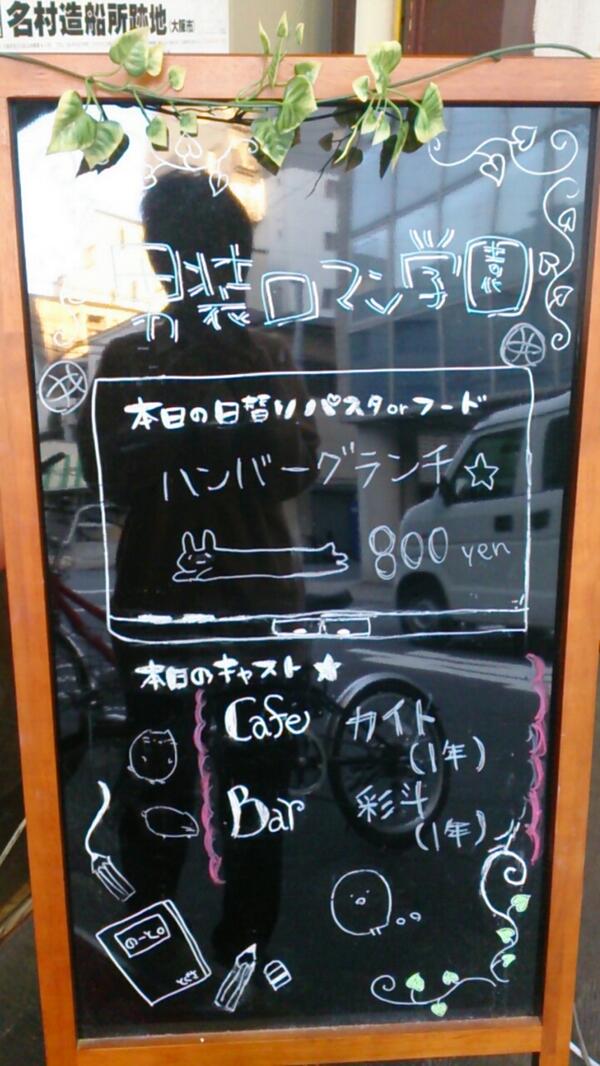 名村造船所跡地(大阪市)
男装ロマン学園
本日の日替りパスタorフード
ハンバーグランチ☆
800 yen
本日のキャスト★
Cafe カイト
(1年)
Bar 彩斗
(1年)
のーと。